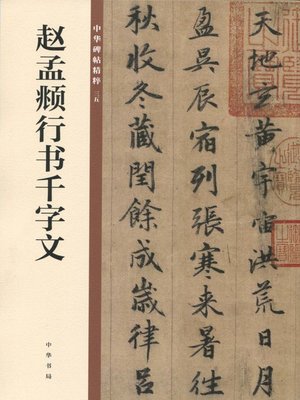 中华碑帖精粹 三五
赵孟頫行书千字文
中华书局
天地玄黄宇宙洪荒日月
盈昃辰宿列張寒来暑往
秋收冬蔵閏餘成歲律呂